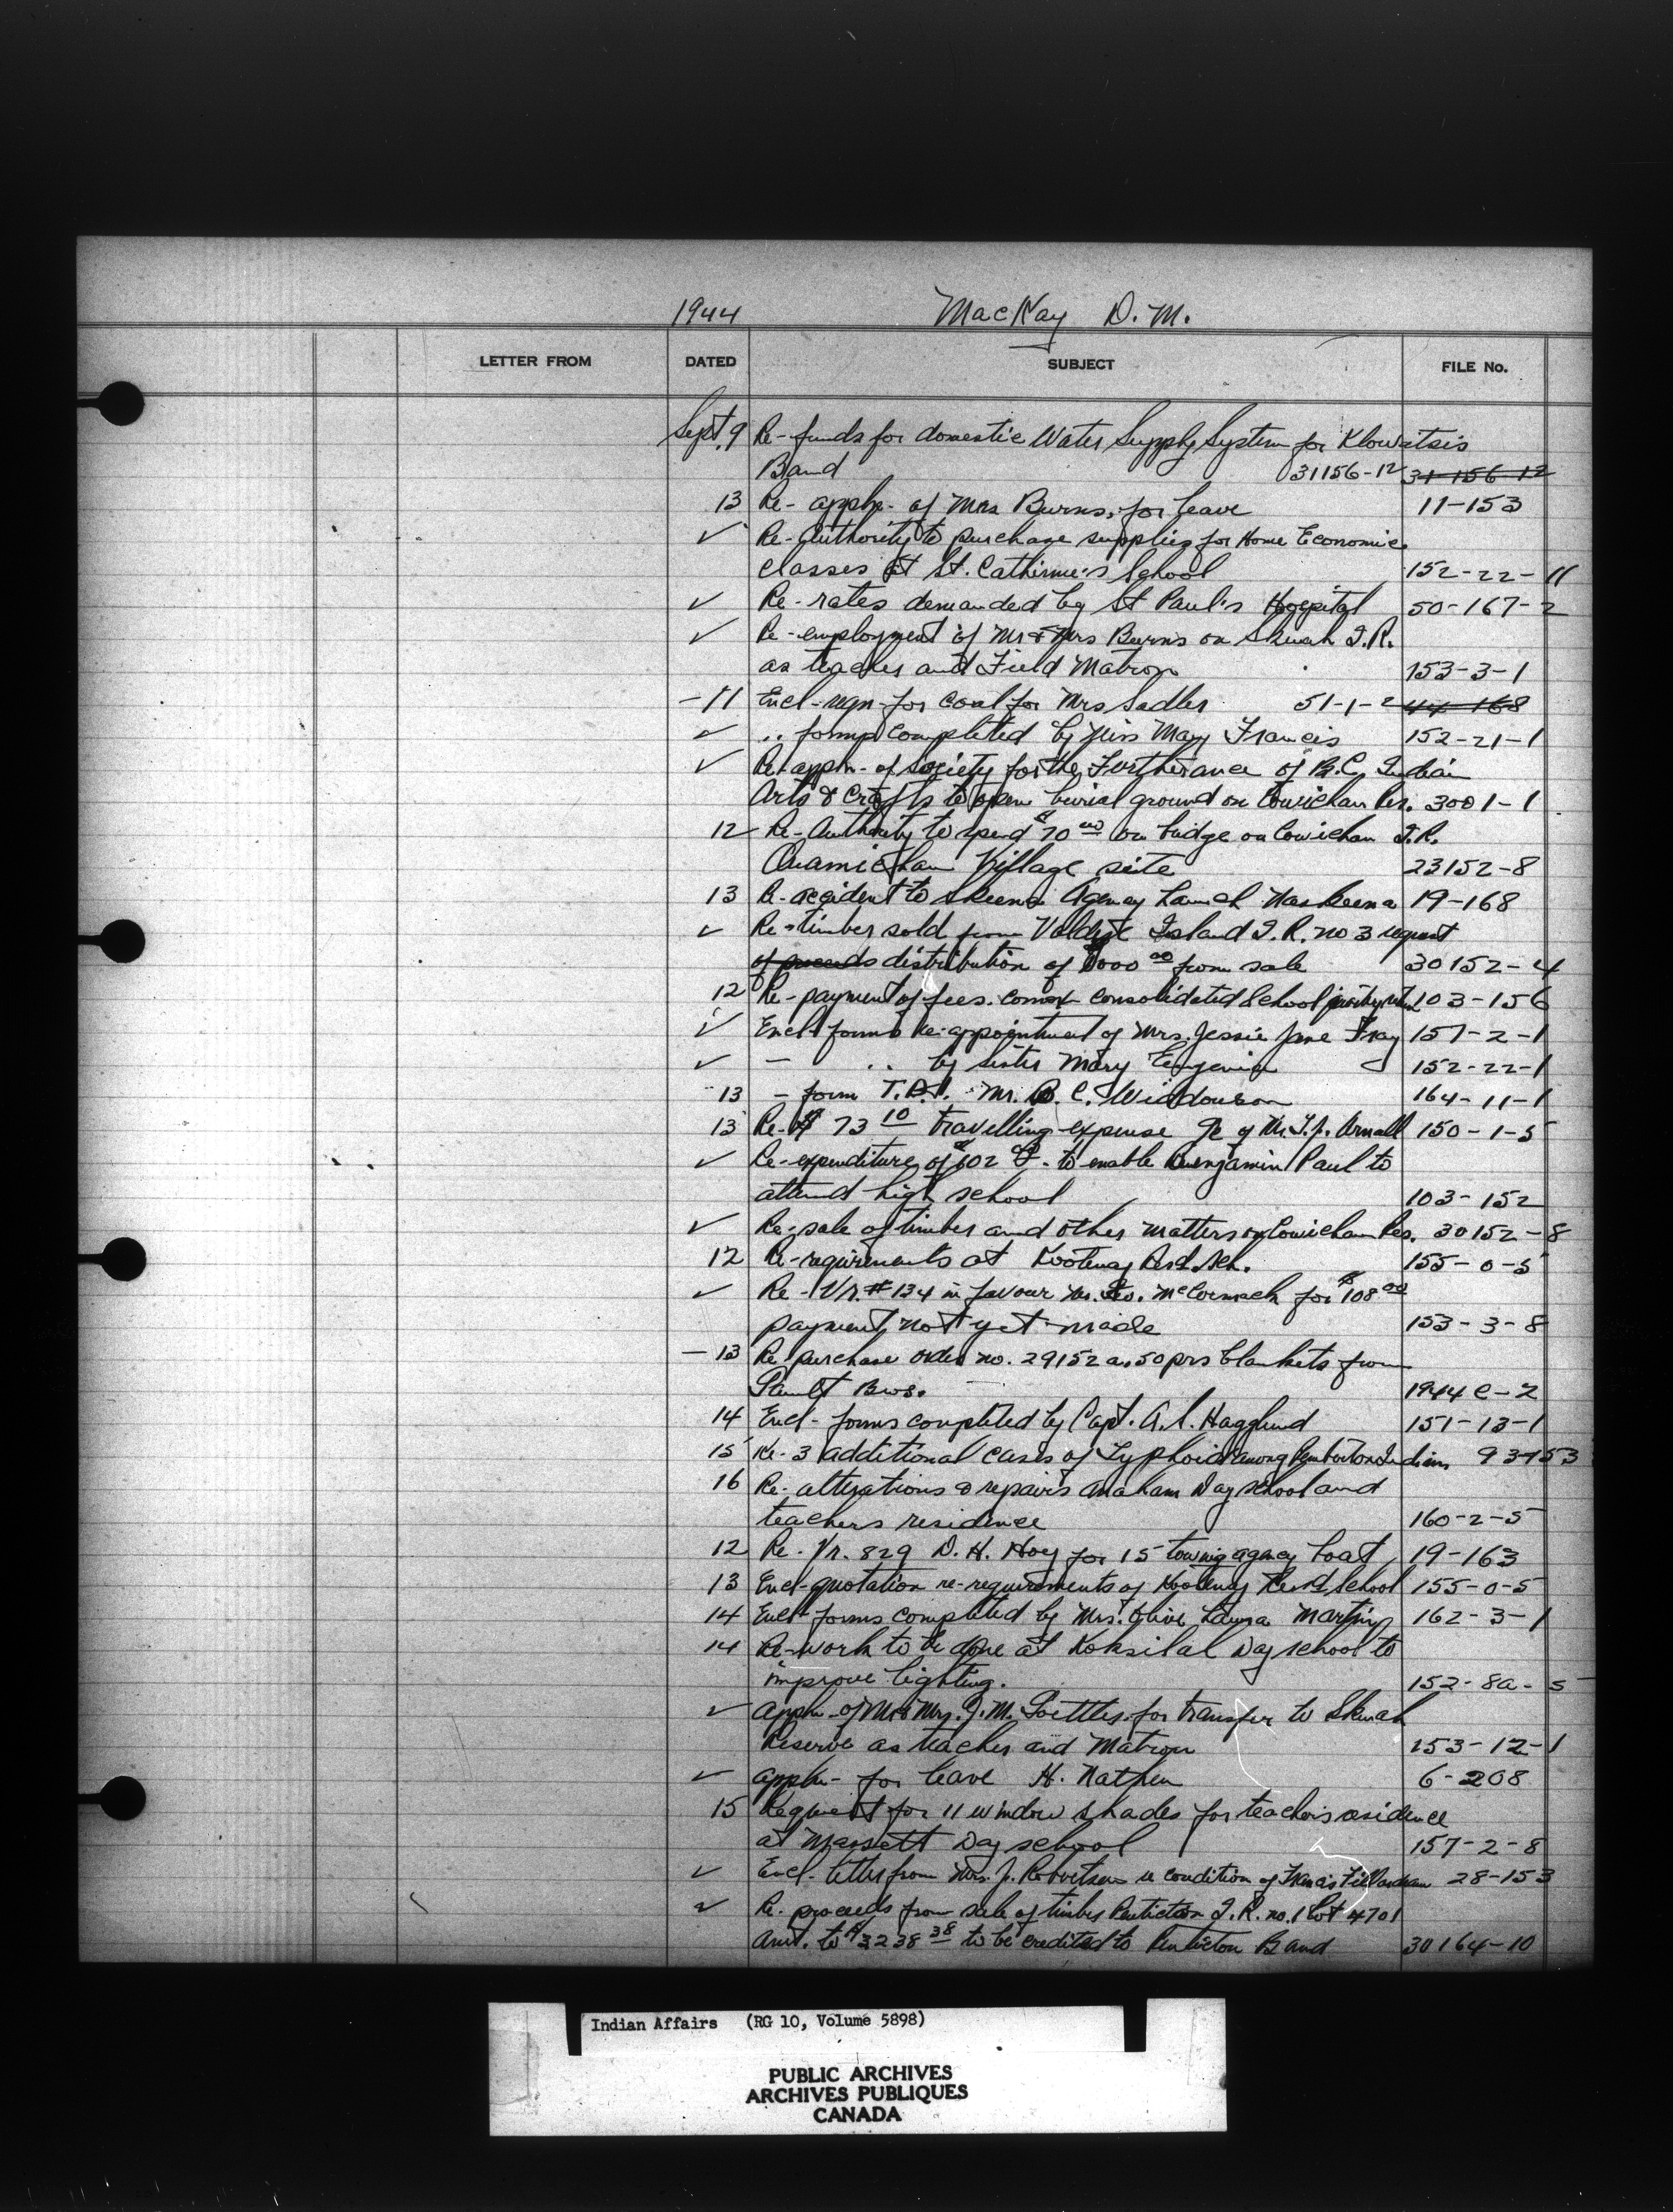 1944 MacKay D. M.
LETTER FROM DATED SUBJECT FILE No.
Sept. 9 Re- funds for domestic Water Supply System for Klowitsis
Band 31156-12 31-156-12
13 Re- appln- of Mrs Burns, for leave 11-153
✓ Re- Authority to purchase supplies for Home Economic
classes at St. Catherine's School 152-22-11
✓ Re- rates demanded by St Paul's Hospital 50-167-2
✓ Re- employment of Mr & Mrs Burns on Skwah I.R.
as teacher and Field Matron 153-3-1
-11 Encl- reqn- for coal for Mrs Sadler 51-1-2 44-168
✓ .. forms completed by Miss Mary Francis 152-21-1
✓ Re- appln- of Society for the Furtherance of B.C. Indian
Arts & Crafts to open burial ground on Cowichan Res. 3001-1
12 Re- Authority to spend $70 00 on bridge on Cowichan I.R.
Quamichan Village site 23152-8
13 Re- accident to Skeena Agency Launch Naskeena 19-168
✓ Re- timber sold from Valdez Island I.R. no 3 request
of proceeds distribution of $000 00 from sale 30152-4
12 Re- payment of fees. Comox Consolidated School 103-156
✓ Encl- forms re- appointment of Mrs. Jessie Jane Fray 157-2-1
✓ - .. by sister Mary Eugenia 152-22-1
13 - form T.D.1. Mr. B. C. Widdowson 164-11-1
13 Re- $ 73 10 travelling expense a/c of Mr. T. J. Arnall 150-1-5
✓ Re- expenditure of $102 to enable Benjamin Paul to
attend high school 103-152
✓ Re- sale of timber and other matters on Cowichan Res. 30152-8
12 Re- requirements at Kootenay Resd. Sch. 155-0-5
✓ Re- Vr. # 134 in favour Mr. Geo. McCormack for $108 00
payment not yet made 153-3-8
-13 Re purchase order no. 29152 a. 50 prs blankets from
Gault Bros. 1944 C-2
14 Encl- forms completed by Capt. A. S. Hagglund 151-13-1
15 Re- 3 additional cases of Typhoid among Pemberton Indians 93-153
16 Re- alterations & repairs Anaham Day school and
teachers residence 160-2-5
12 Re- Vr. 829 D. H. Hoy for 15 towing agency boat 19-163
13 Encl- quotation re- requirements of Kootenay Resd School 155-0-5
14 Encl- forms completed by Mrs. Olive Laura Martin 162-3-1
14 Re- work to be done at Koksilah Day school to
improve lighting. 152-8a-5
✓ appln- of Mr & Mrs. J. M. for transfer to Skwah
Reserve as teacher and Matron 153-12-1
✓ appln- for leave H. Nathen 6-208
15 Request for 11 window shades for teacher's residence
at Massett Day school 157-2-8
✓ Encl- letter from Mrs. J. Robertson re condition of Francis 28-153
✓ Re- proceeds from sale of timber Penticton I.R. no. 1 Lot 4701
Amt. to $3238 38 to be credited to Penticton Band 30164-10
Indian Affairs (RG 10, Volume 5898)
PUBLIC ARCHIVES
ARCHIVES PUBLIQUES
CANADA